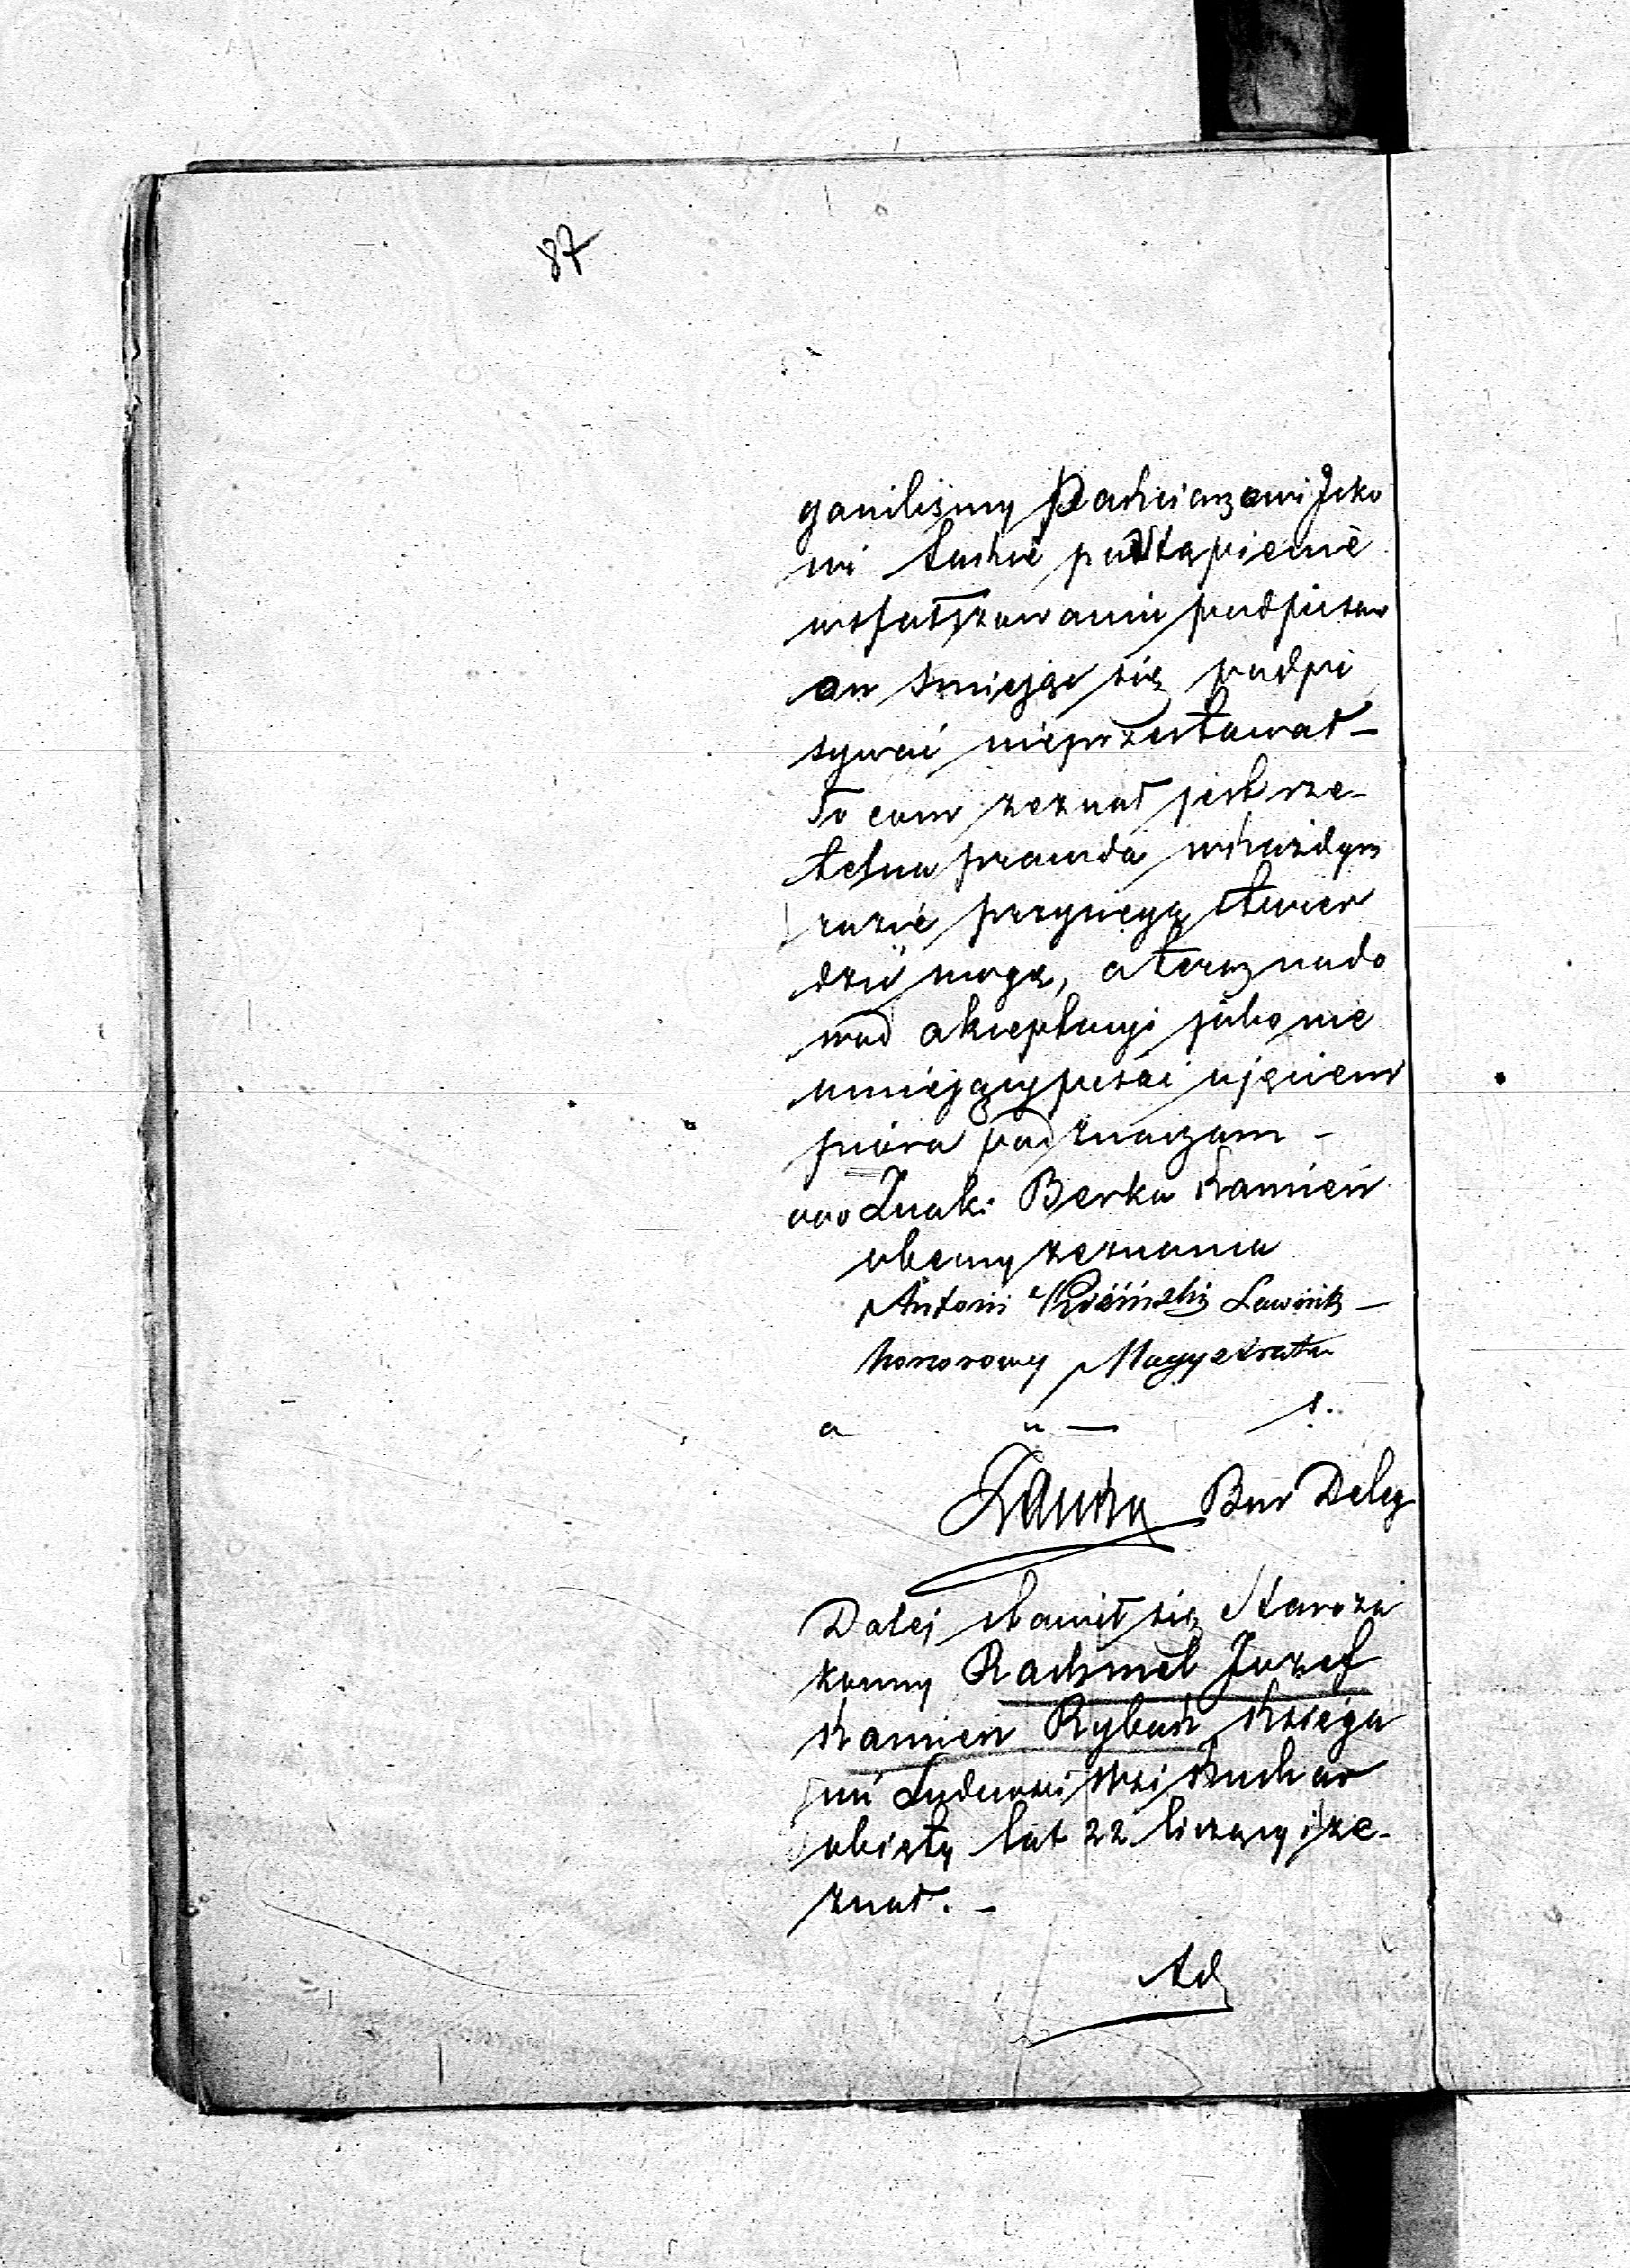 87
ganiliśmy Pachciarzowi Jcko
wi takie postąpienie
wsfałszowaniu podpisów
on smiejąc się podpi
sywać nieprzestawał –
To com zeznał jest rze-
telna prawda wkażdym
razie przysięgą stwier
dzić mogę, a teraz na do
wod akceptacyi jako nie
umiejący pisać ujęciem
pióra podznaczam –
ooo Znaki Berka Kamień
obecny zeznania
Antoni Ławnik –
honorowy Magystratu
a u — s.
Bur Deleg
Dalej stawił się Staroza
konny Rachmel Jozef
Kamień Rybak Księga
mi Ludnosci Wsi Kuchar
obięty lat 22 liczący i ze-
znał. –